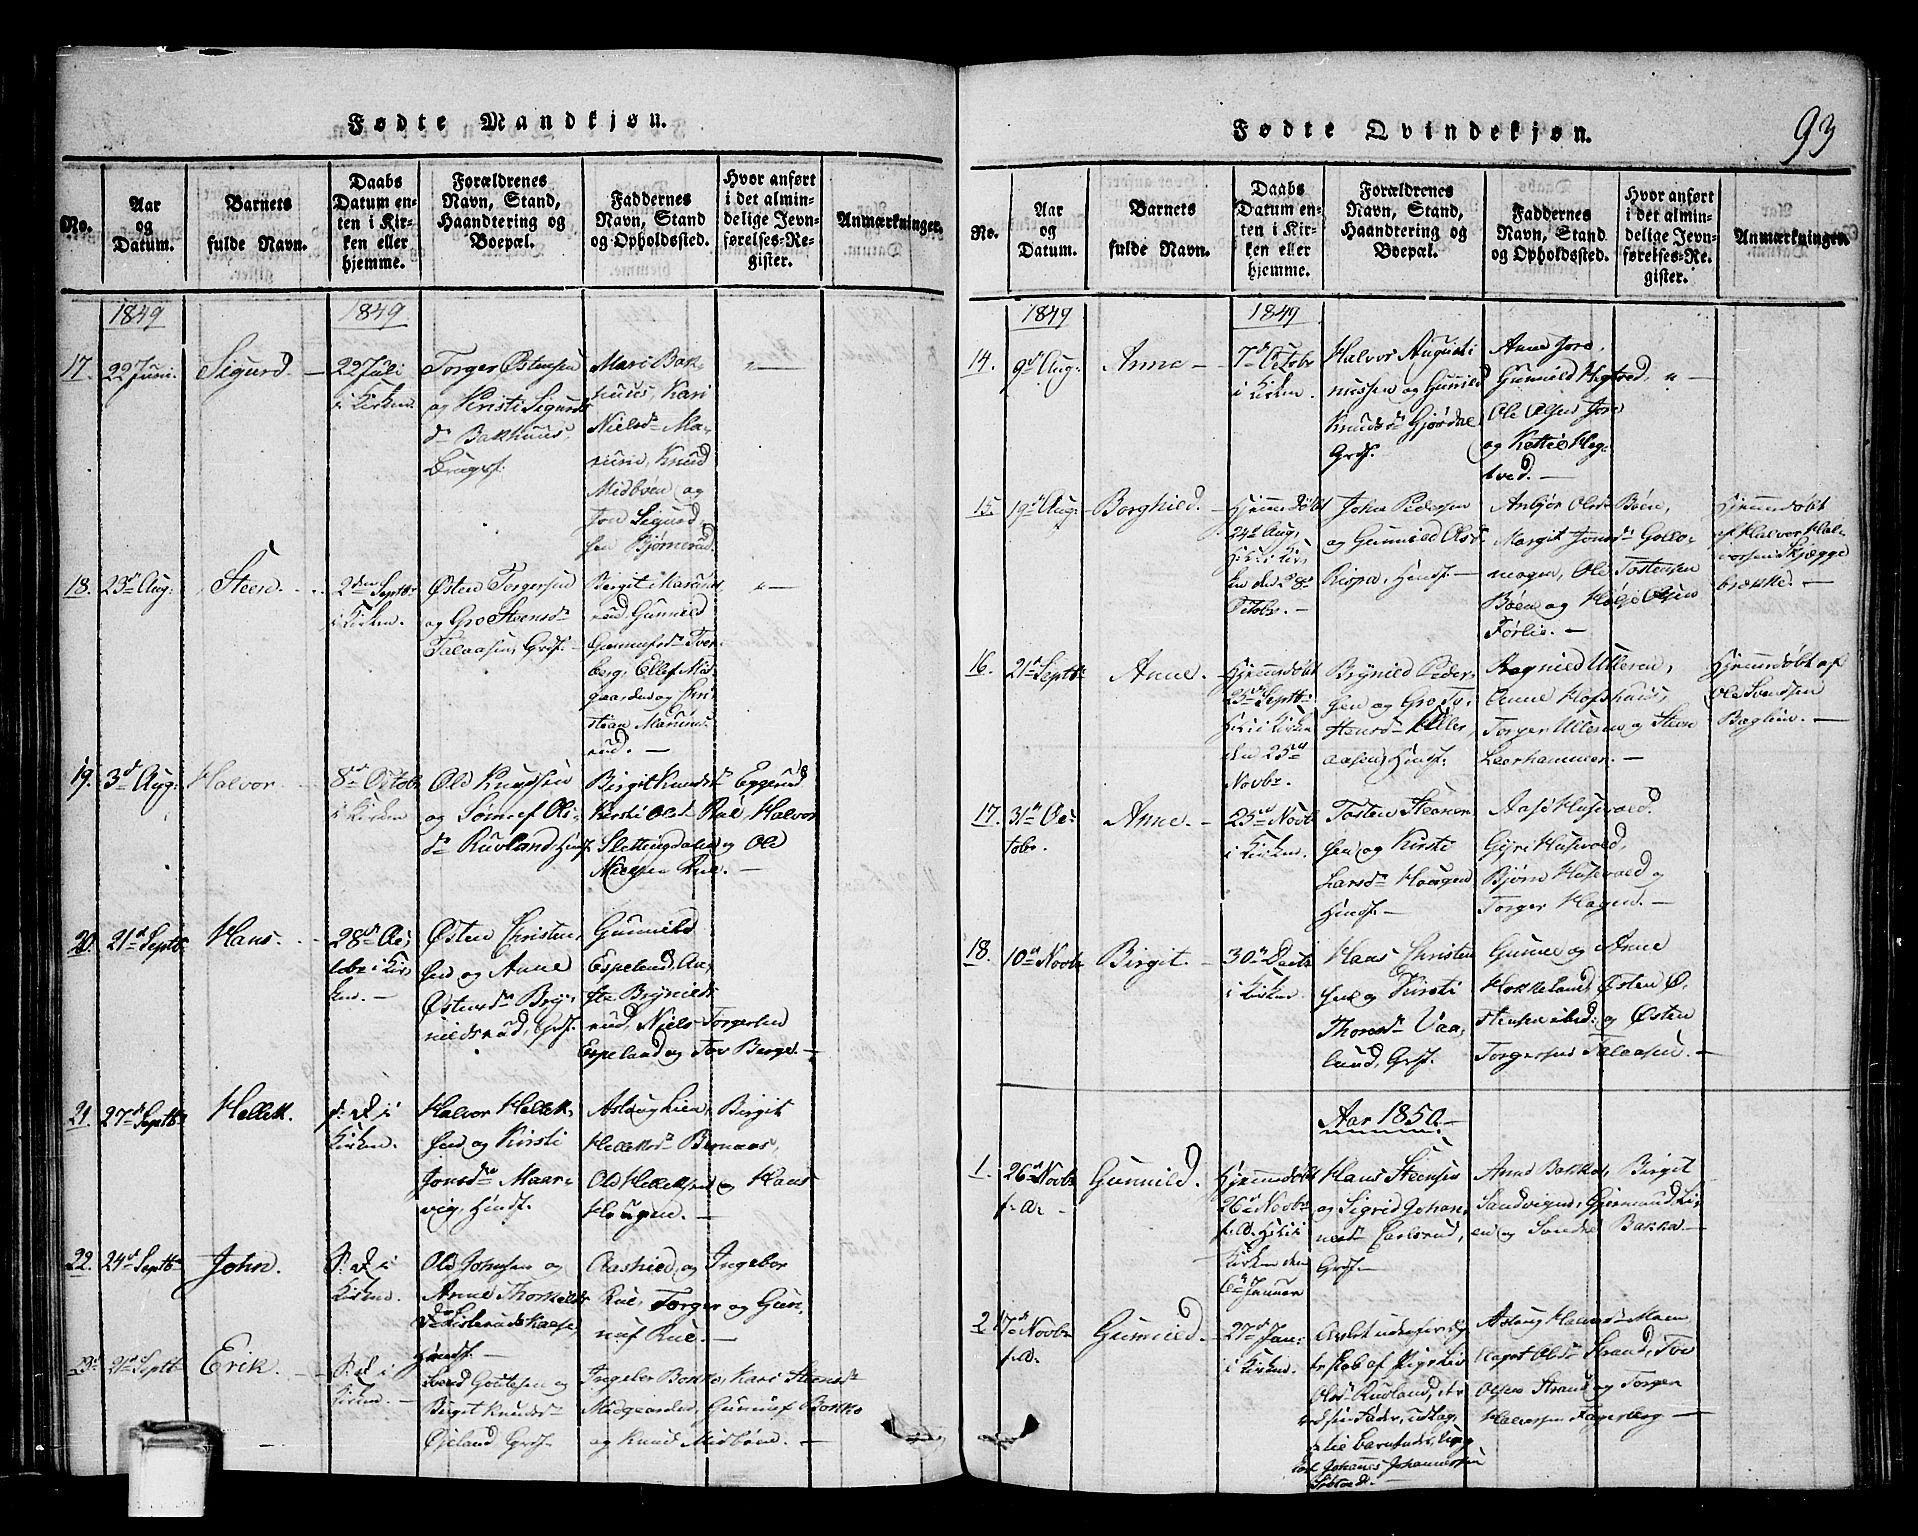 Fødte Mandkjøn.
No.
Aar
og
Datum.
Barnets
fulde Navn.
Daabs
Datum en-
ten i Kir-
ken eller
hjemme.
Forældrenes
Navn, Stand,
Haandtering og
Boepæl.
Faddernes
Navn, Stand
og Opholdssted.
Hvor anført
i det almin-
delige Jevn-
førelses-Re-
gister.
Anmærkninger.
1849
1849
17.
22 Juni.
Sigurd
29 Juli
i Kirken.
Torger Østensen
og Kirsti Sigurds
dr Bakhuus,
Brugsf.
Mari Bak-
huus, Kari
Nielsdr Ma-
Knud
Midbøen og
Jon Sigurd-
sen Bjørnerud.
18.
23 Aug:
Steen.
2den Septbr
i Kirken.
Østen Torgersen
og Gro Steensdr
Talaasen, Grdf.
Birgit
rud, Gunnild
Gunnufsdr Tver-
berg, Ellef Mid-
gaarden og Kri-
stian
rud.
19.
3d Aug:
Halvor
8d Octobr
i Kirken
Ole Knudsen
og Ols-
dr Ruvland
Birgit Knudsdr Eggerud
Kirsti Olsdr Rue, Halvor
Slettingdalen og Ole
Nielsen Rue.
20.
21d Septbr
Hans.
28d Oc-
tobr i Kir-
ken.
Østen Christen-
sen og Anne
Østensdr Bry-
nildsrud, Grdf.
Gunnild
Espeland, An-
ne Brynilds-
rud, Niels Torgersen
Espeland og Tov Berge.
21.
27d Septbr
Hellek.
s: D i
Kirken.
Halvor Hellek-
sen og Kirsti
Jonsdr Maar-
vig, Huusf.
Aslaug Lien, Birgit
Helleksdr Bernaas,
Ole Helleksen og Hans
Haugen.
22.
24d Septbr
John.
S. D i
Kirken.
Ole Johnsen og
Anne Thorkelds-
Huusf.
Aashild og Ingebor
Rue, Torger og Gun-
nuf Rue.
23.
21d Septbr
Erik
S. D i
Kirken.
Svend Goutesen og
Birgit Knudsdr
Øyeland Grdf.
Ingebor Bakke, Kari Steensdr
Midgaarden, Gunnuf Bakke
og Knud Midbøen.
93
Fødte Qvindekjøn.
No.
Aar
og
Datum.
Barnets
fulde Navn.
Daabs
Datum en-
ten i Kir-
ken eller
hjemme.
Forældrenes
Navn, Stand,
Haandtering og
Boepæl.
Faddernes
Navn, Stand
og Opholdssted.
Hvor anført
i det almin-
delige Jevn-
førelses-Re-
gister.
Anmærkninger.
1849
1849
14.
9d Aug:
Anne
7d Octobr
i Kirken.
Halvor Augusti-
nussen og Gunnild
Knudsdr Gjørdal
Grdf.
Anne Jore,
Gunnild Hegtved,
Ole Olsen Jore
og Kettil Heg-
tved.
15.
19d Aug:
Borghild.
Hjemmedøbt
24d Aug,
i Kir-
ken den 8d
Octobr.
John Pedersen
og Gunnild Olsdr
Rispa, Huusf.
Anbjør Olsdr Bøen,
Margit Jonsdr Gollo-
mogen, Ole Tostensen
Bøen og Helje Olsen
Førlie.
Hjemmedøbt
af Halvor Hal-
vorsen Skjægge-
brække.
16.
21d Septbr
Anne.
Hjemmedøbt
23d Septbr.
i Kirken
den 25d
Novbr.
Brynild Peder-
sen og Gro To-
stensdr
aasen, Huusf.
Ragnild Ulleren,
Anne Hofshuus,
Torger Ulleren og Steen
Leerhammer.
Hjemmedøbt af
Ole Svendsen
Baglien.
17.
31d Oc-
tobr.
Anne.
25d Novbr
i Kirken.
Tosten Steener-
sen og Kirsti
Larsdr Haugen
Huusf.
Aase Husevold.
Gyri Husevold,
Bjørn Husevold og
Torger Hagen.
18.
10d Novbr
Birgit.
30d Decbr
i Kirken.
Hans Christen-
sen og Kirsti
Thorsdr Vaa-
lund, Grdf.
Gunne og Anne
Hokkeland, Østen Ø-
stensen ibid: og Østen
Torgersen Talaasen.
Aar 1850.
1.
26d Novbr
f. A.
Gunnild.
Hjemmedøbt
26d Novbr
f. A. i
Kirken den
6d Januar
Hans Steensen
og Sigrid Johan-
nesdr Carlsrud,
Grdf.
Anne Bakke, Birgit
Sandvigen, Gjermund Li-
en og Sondre Bakke.
2.
17d Novbr
f. A.
Gunnild.
27d Jan:
i Kirken.
Avlet udenfor Æg-
teskab af Pige Liv
Olsdr Ruvland,
Fader, udlag-
Johannes Johannessen
Aslaug Halvorsdr Moen,
Hæge Olsdr Strand, Tov
Olsen Strand og Torger
Halvorsen Fagerberg